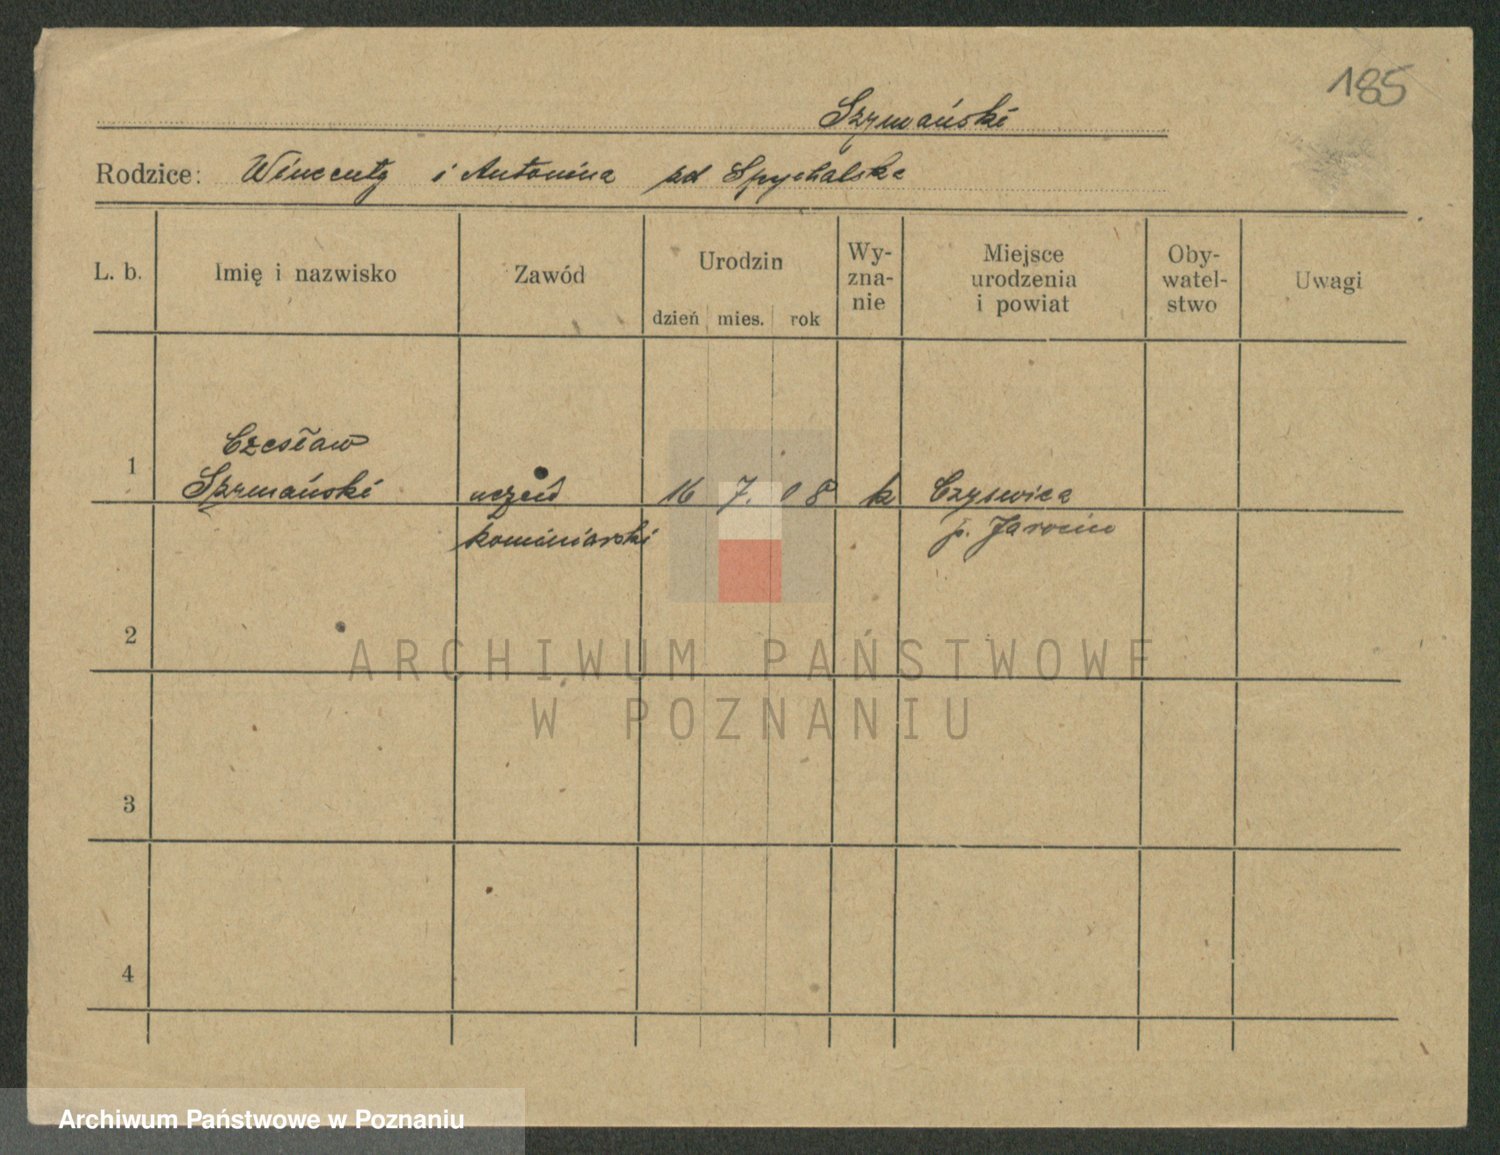 185
Szymański
Rodzice: Wincenty i Antonina zd Spychalska
L. b.
Imię i nazwisko
Zawód
Urodzin
dzień mies. rok
Wy-
zna-
nie
Miejsce
urodzenia
i powiat
Oby-
watel-
stwo
Uwagi
1
Czesław
Szymański
uczeń
kominiarski
16 7. 08
k
p. Jarocin
2
3
4
ARCHIWUM PAŃSTWOWE
W POZNANIU
Archiwum Państwowe w Poznaniu